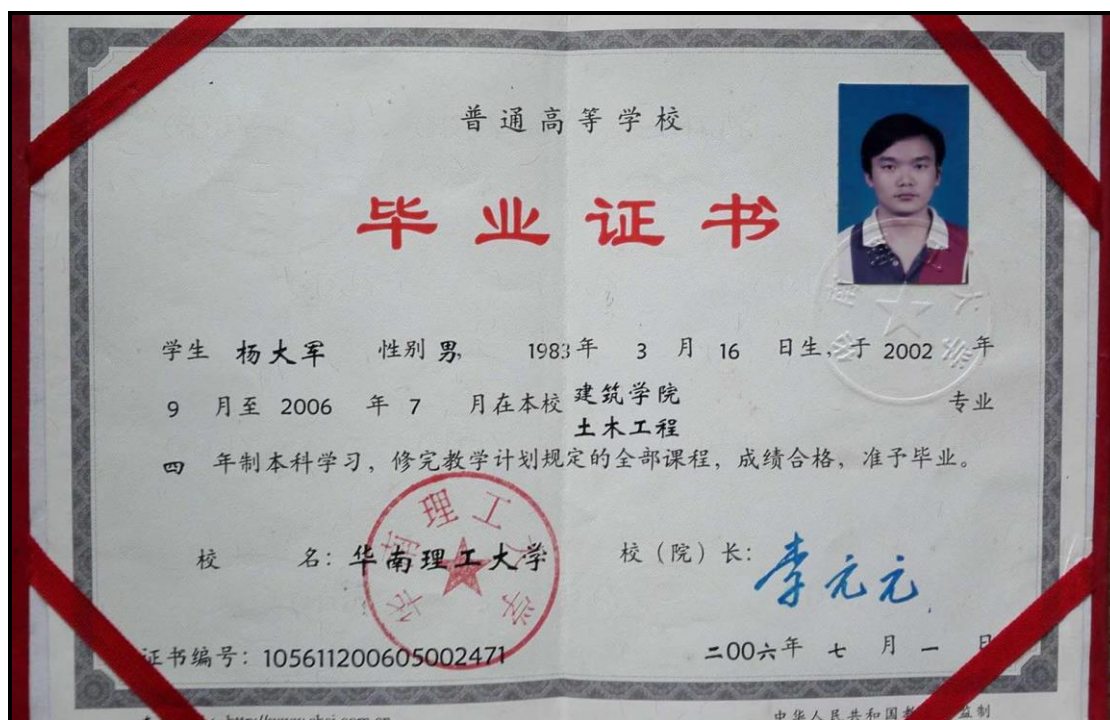 普通高等学校
毕业证书
学生 杨大军 性别 男, 1983年 3 月 16 日生,于 2002 年
9 月至 2006 年 7 月在本校 建筑学院 专业
土木工程
四 年制本科学习,修完教学计划规定的全部课程,成绩合格,准予毕业。
华南理工大学
校 名:华南理工大学 校(院)长:李元元
证书编号:105611200605002471 二00六年 七 月 一 日
http://www.chsi.com.cn 中华人民共和国教 监制